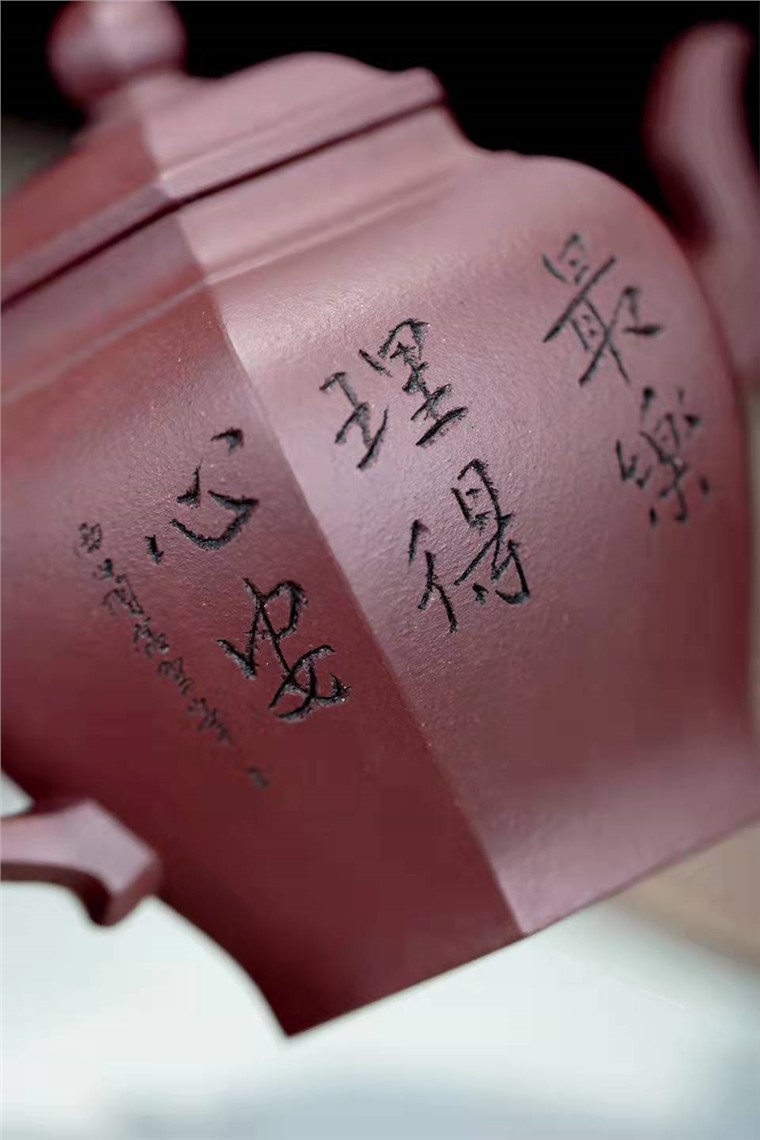 最樂
理得
心安